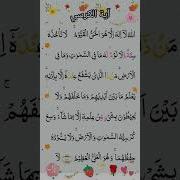 آية الكرسي
اللَّهُ لَا إِلَهَ إِلَّا هُوَ الْحَيُّ الْقَيُّومُ ۚ لَا تَأْخُذُهُ
سِنَةٌ وَلَا نَوْمٌ ۚ لَهُ مَا فِي السَّمَوَتِ وَمَا فِي
الْأَرْضِ ۗ مَنْ ذَا الَّذِي يَشْفَعُ عِنْدَهُ إِلَّا بِإِذْنِهِ ۚ
يَعْلَمُ مَا بَيْنَ أَيْدِيهِمْ وَمَا خَلْفَهُمْ ۖ وَلَا
يُحِيطُونَ بِشَيْءٍ مِنْ عِلْمِهِ إِلَّا بِمَا شَاءَ ۚ وَسِعَ
كُرْسِيُّهُ السَّمَوَتِ وَالْأَرْضَ ۖ وَلَا يَئُودُهُ
حِفْظُهُمَا ۚ وَهُوَ الْعَلِيُّ الْعَظِيمُ